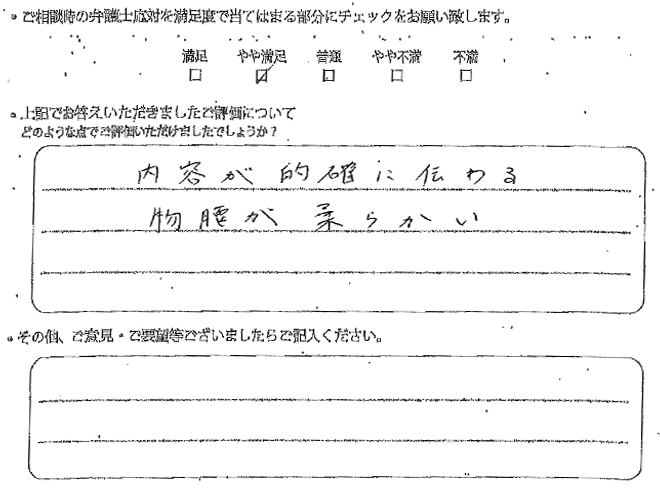 ご相談時の弁護士応対を満足度で当てはまる部分にチェックをお願い致します。
満足 やや満足 普通 やや不満 不満
上記でお答えいただきましたご評価について
どのような点でご評価いただけましたでしょうか?
内容が的確に伝わる
物腰が柔らかい
その他、ご意見・ご要望等ございましたらご記入ください。